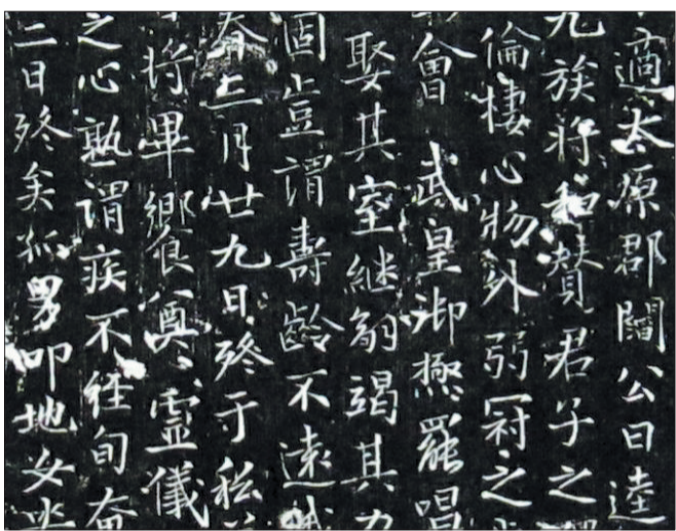 適太原郡闞公曰逵
九族將和贊君子之
倫棲心物外弱冠之
會武皇御極罷唱
娶其室繼翎竭其力
固豈謂壽齡不遠
春三月廿九日終于私
將畢饗奠靈儀
之心熟謂疾不經旬奄
二日終矣孤男叩地女